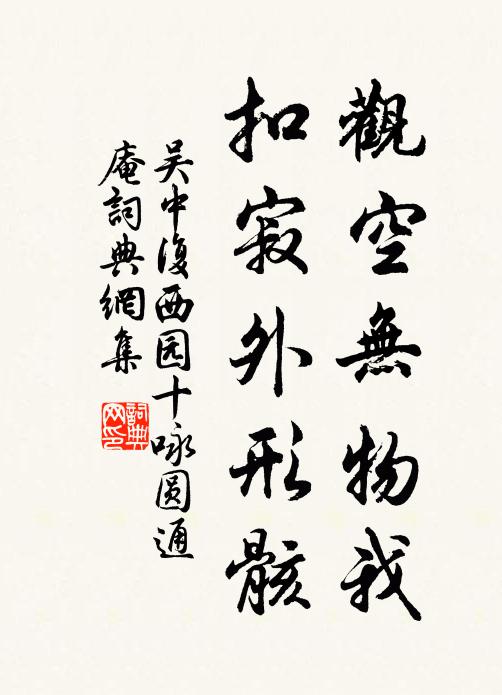 觀空無物我
扣寂外形骸
吴中復西园十咏圆通
庵詞典網集
詞典
网印